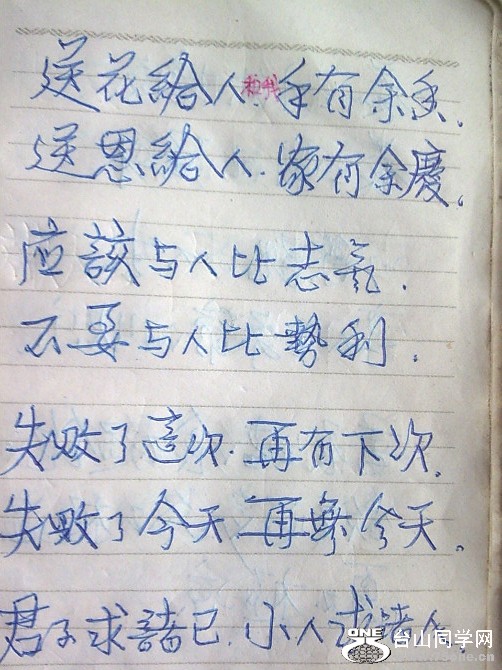 送花給人. 手有余香.
送恩給人. 家有余慶.
应該与人比志氣.
不要与人比勢利.
失败了這次. 再有下次.
失败了今天. 再無今天.
君子求諸己 小人求諸人.
ONE 台山同学网